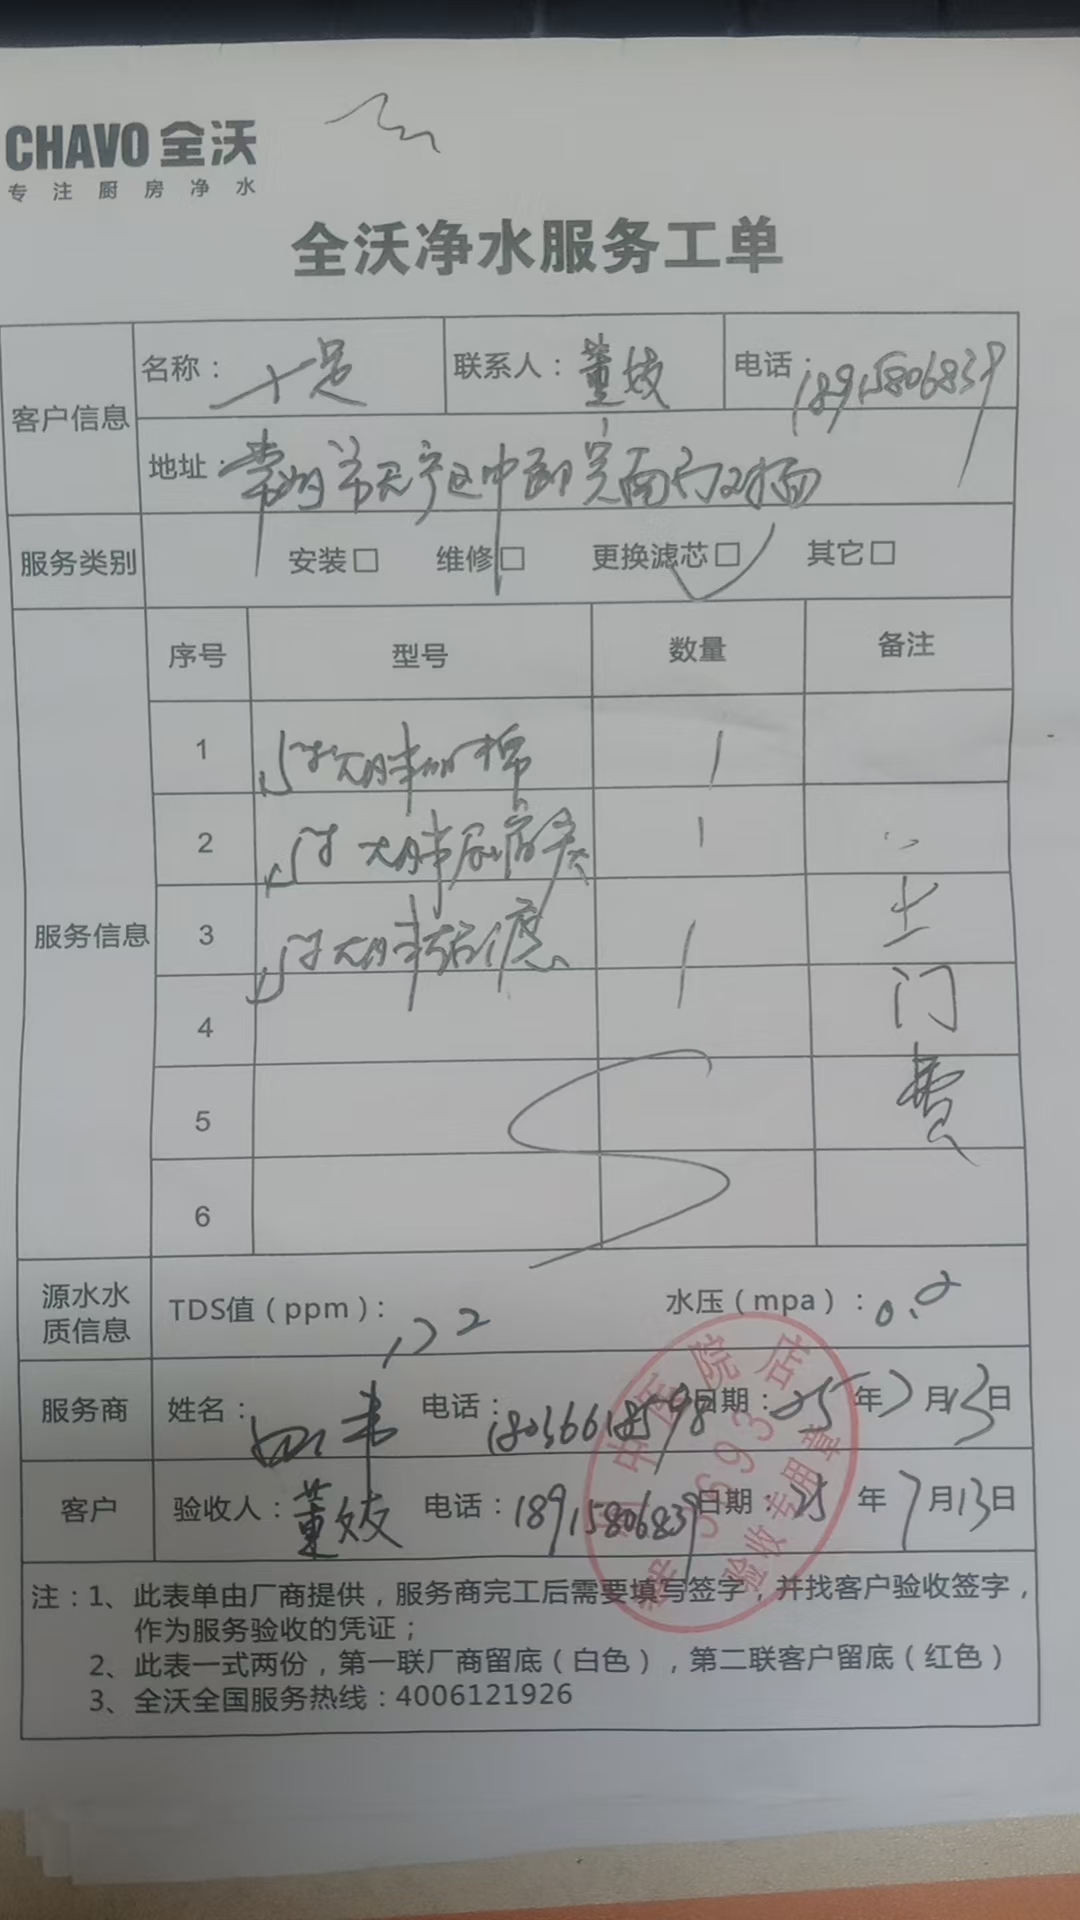 CHAVO 全沃
专注厨房净水
全沃净水服务工单
客户信息
名称：
联系人：董
电话：18915806839
地址：常州市天宁区中医院南门对面
服务类别
安装□ 维修□ 更换滤芯□ 其它□
服务信息
序号 型号 数量 备注
1 大胖 棉 1
2 大胖 1
3 大胖 1
4
5
6
上
门
费
源水水质信息
TDS值（ppm）：122 水压（mpa）：0.2
服务商
姓名： 电话：18036618598 日期：25年7月13日
客户
验收人：董 电话：18915806839 日期：25年7月13日
中医院店
6693
验收专用章
注：1、此表单由厂商提供，服务商完工后需要填写签字，并找客户验收签字，
作为服务验收的凭证；
2、此表一式两份，第一联厂商留底（白色），第二联客户留底（红色）
3、全沃全国服务热线：4006121926